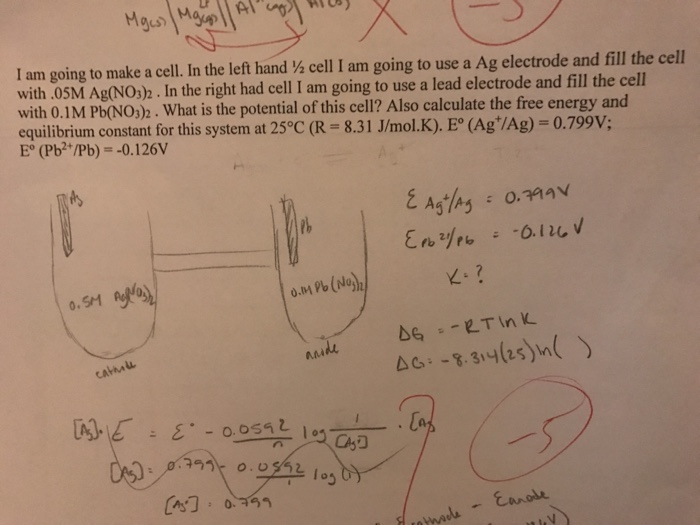 Mg(s) | Mg(aq) || Al (aq) |
-5
I am going to make a cell. In the left hand ½ cell I am going to use a Ag electrode and fill the cell
with .05M Ag(NO₃)₂ . In the right had cell I am going to use a lead electrode and fill the cell
with 0.1M Pb(NO₃)₂ . What is the potential of this cell? Also calculate the free energy and
equilibrium constant for this system at 25°C (R = 8.31 J/mol.K). E° (Ag⁺/Ag) = 0.799V;
E° (Pb²⁺/Pb) = -0.126V
Ag
Pb
0.5M Ag(NO₃)₂
0.1M Pb(NO₃)₂
cathode
anode
ℰ Ag⁺/Ag = 0.799V
ℰ Pb²⁺/Pb = -0.126V
K = ?
ΔG = -RT ln K
ΔG = -8.314(25) ln( )
[Ag]. E = ℰ° - 0.0592/n log 1/[Ag⁺]
[Ag] = 0.799 - 0.0592/1 log(1)
[Ag⁺] = 0.799
-5
cathode - Eanode